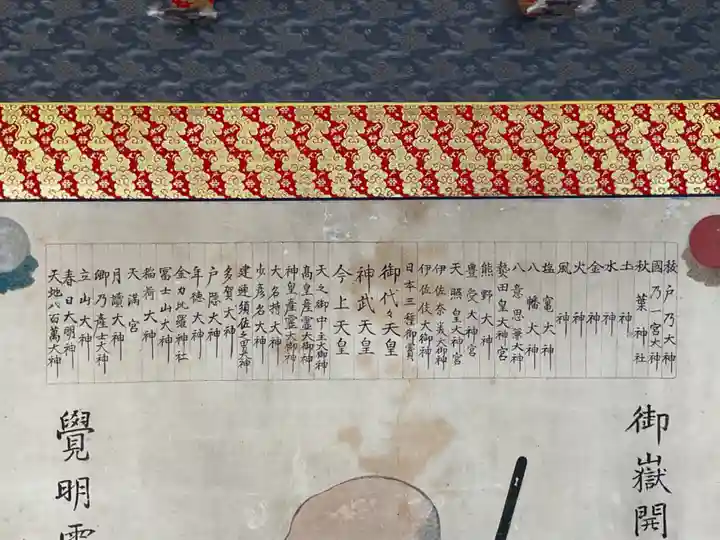 祓戸乃大神
國乃一宮大神
秋葉神社
土神
水神
金神
火神
風神
塩竃大神
八幡大神
八意思兼大神
熱田皇大神宮
熊野大神
豊受大神宮
天照皇大神宮
伊佐奈美大御神
伊佐伎大御神
日本三種御寳
御代々天皇
神武天皇
今上天皇
天之御中主大御神
髙皇産霊大御神
神皇産霊大御神
大名持大神
少彦名大神
建速須佐之男大神
多賀大神
戸隠大神
年徳大神
金刀比羅神社
冨士山大神
稲荷大神
天満宮
月讀大神
御乃産土大神
立山大神
春日大明神
天地八百萬大神
御嶽開
覺明霊